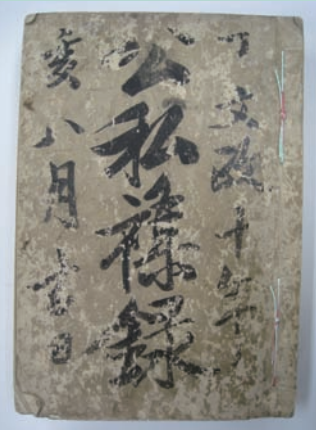 文政十年丁
公私襍録
亥八月吉日